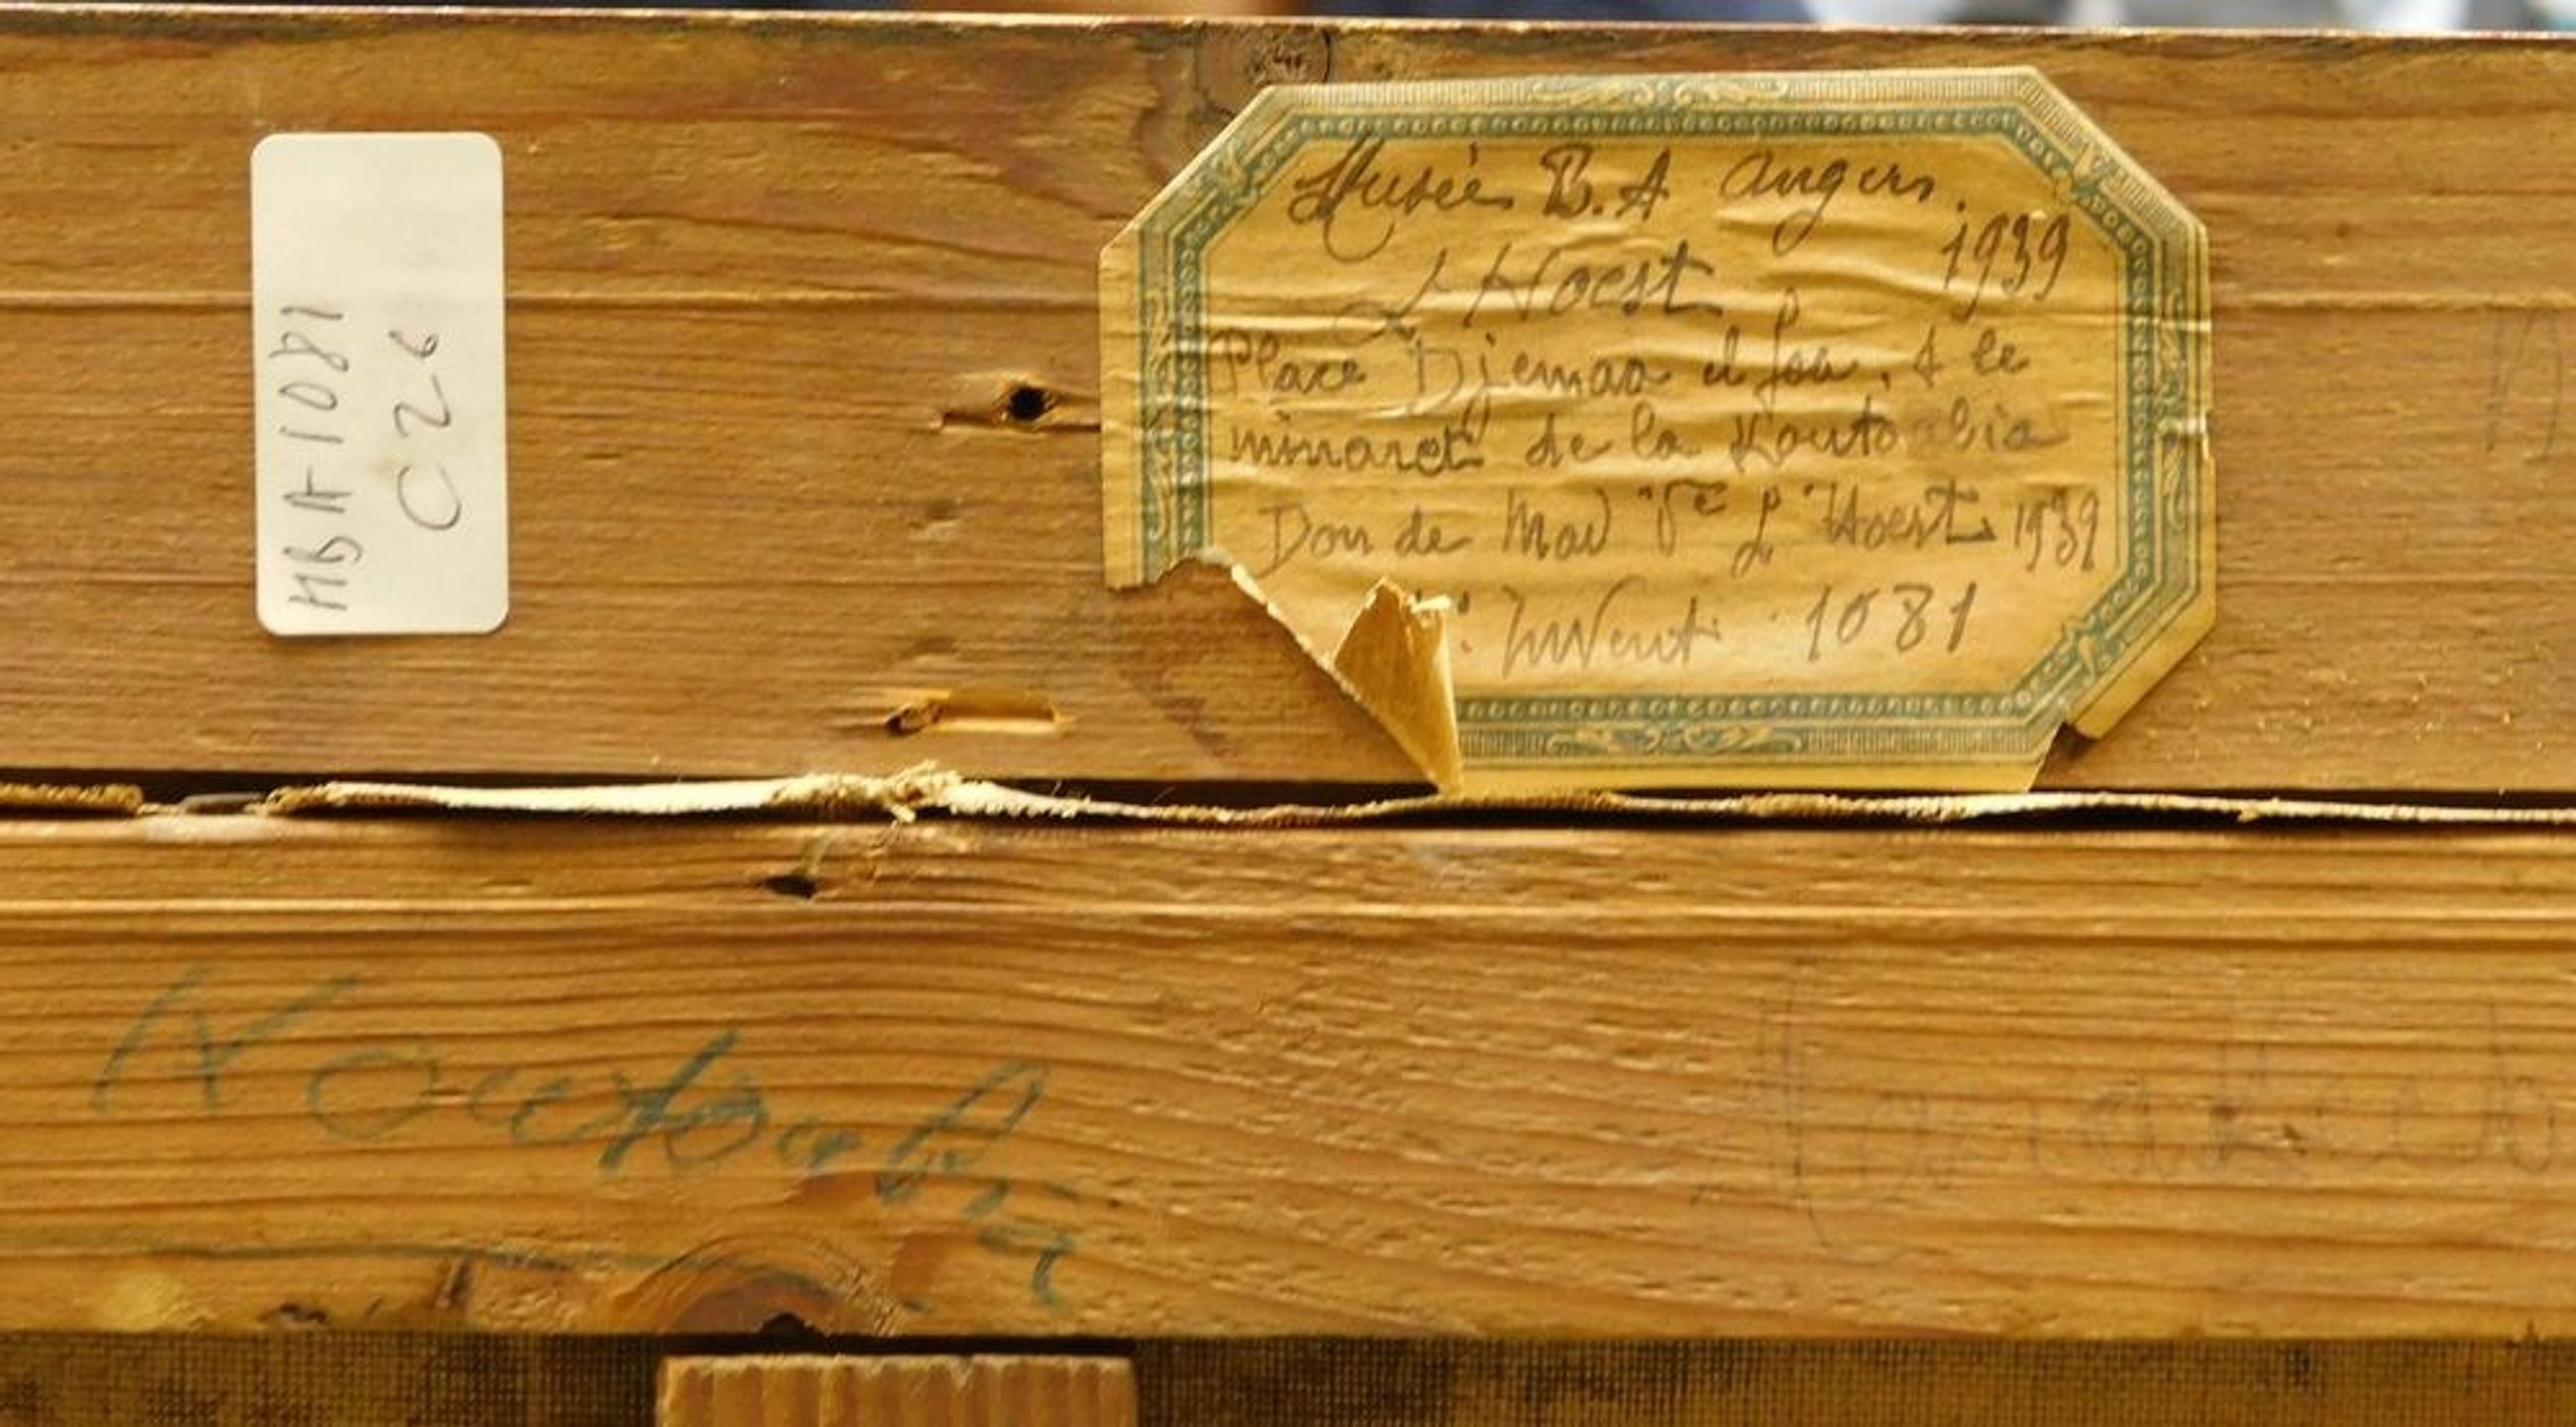 MBA 1081
C26
Musée B.A Angers.
1939
L'Hoest
Place Djemaa el fna, & le
minaret de la Koutoubia
Don de Mad Vve L'Hoest 1939
Invent 1081
Koutoubia